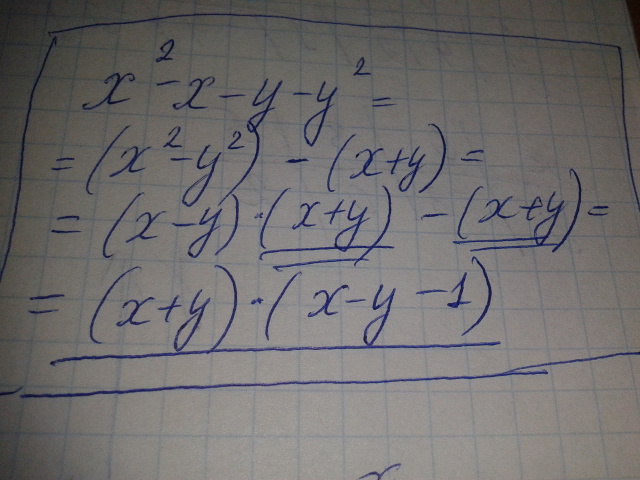 x² - x - y - y² =
= (x² - y²) - (x+y) =
= (x-y)·(x+y) - (x+y) =
= (x+y)·(x-y-1)
x